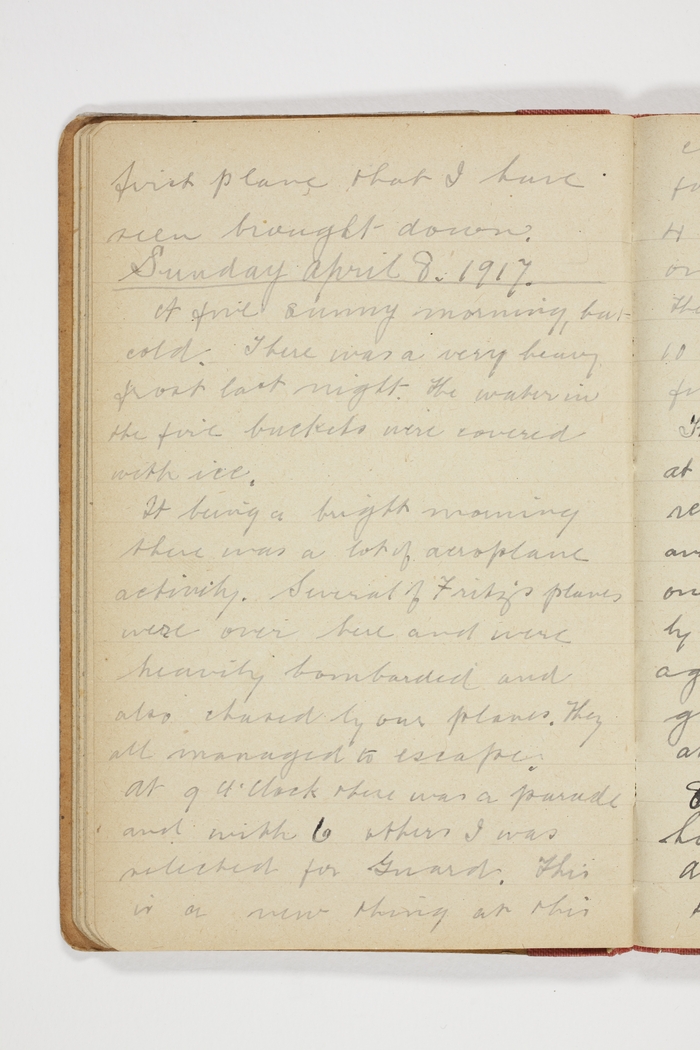 first plane that I have
seen brought down.
Sunday April 8. 1917.
A fine sunny morning, but
cold. There was a very heavy
frost last night. The water in
the fire buckets were covered
with ice.
It being a bright morning
there was a lot of aeroplane
activity. Several of Fritz's planes
were over here and were
heavily bombarded and
also chased by our planes. They
all managed to escape.
At 9 O'Clock there was a parade
and with 6 others I was
selected for Guard. This
is a new thing at this